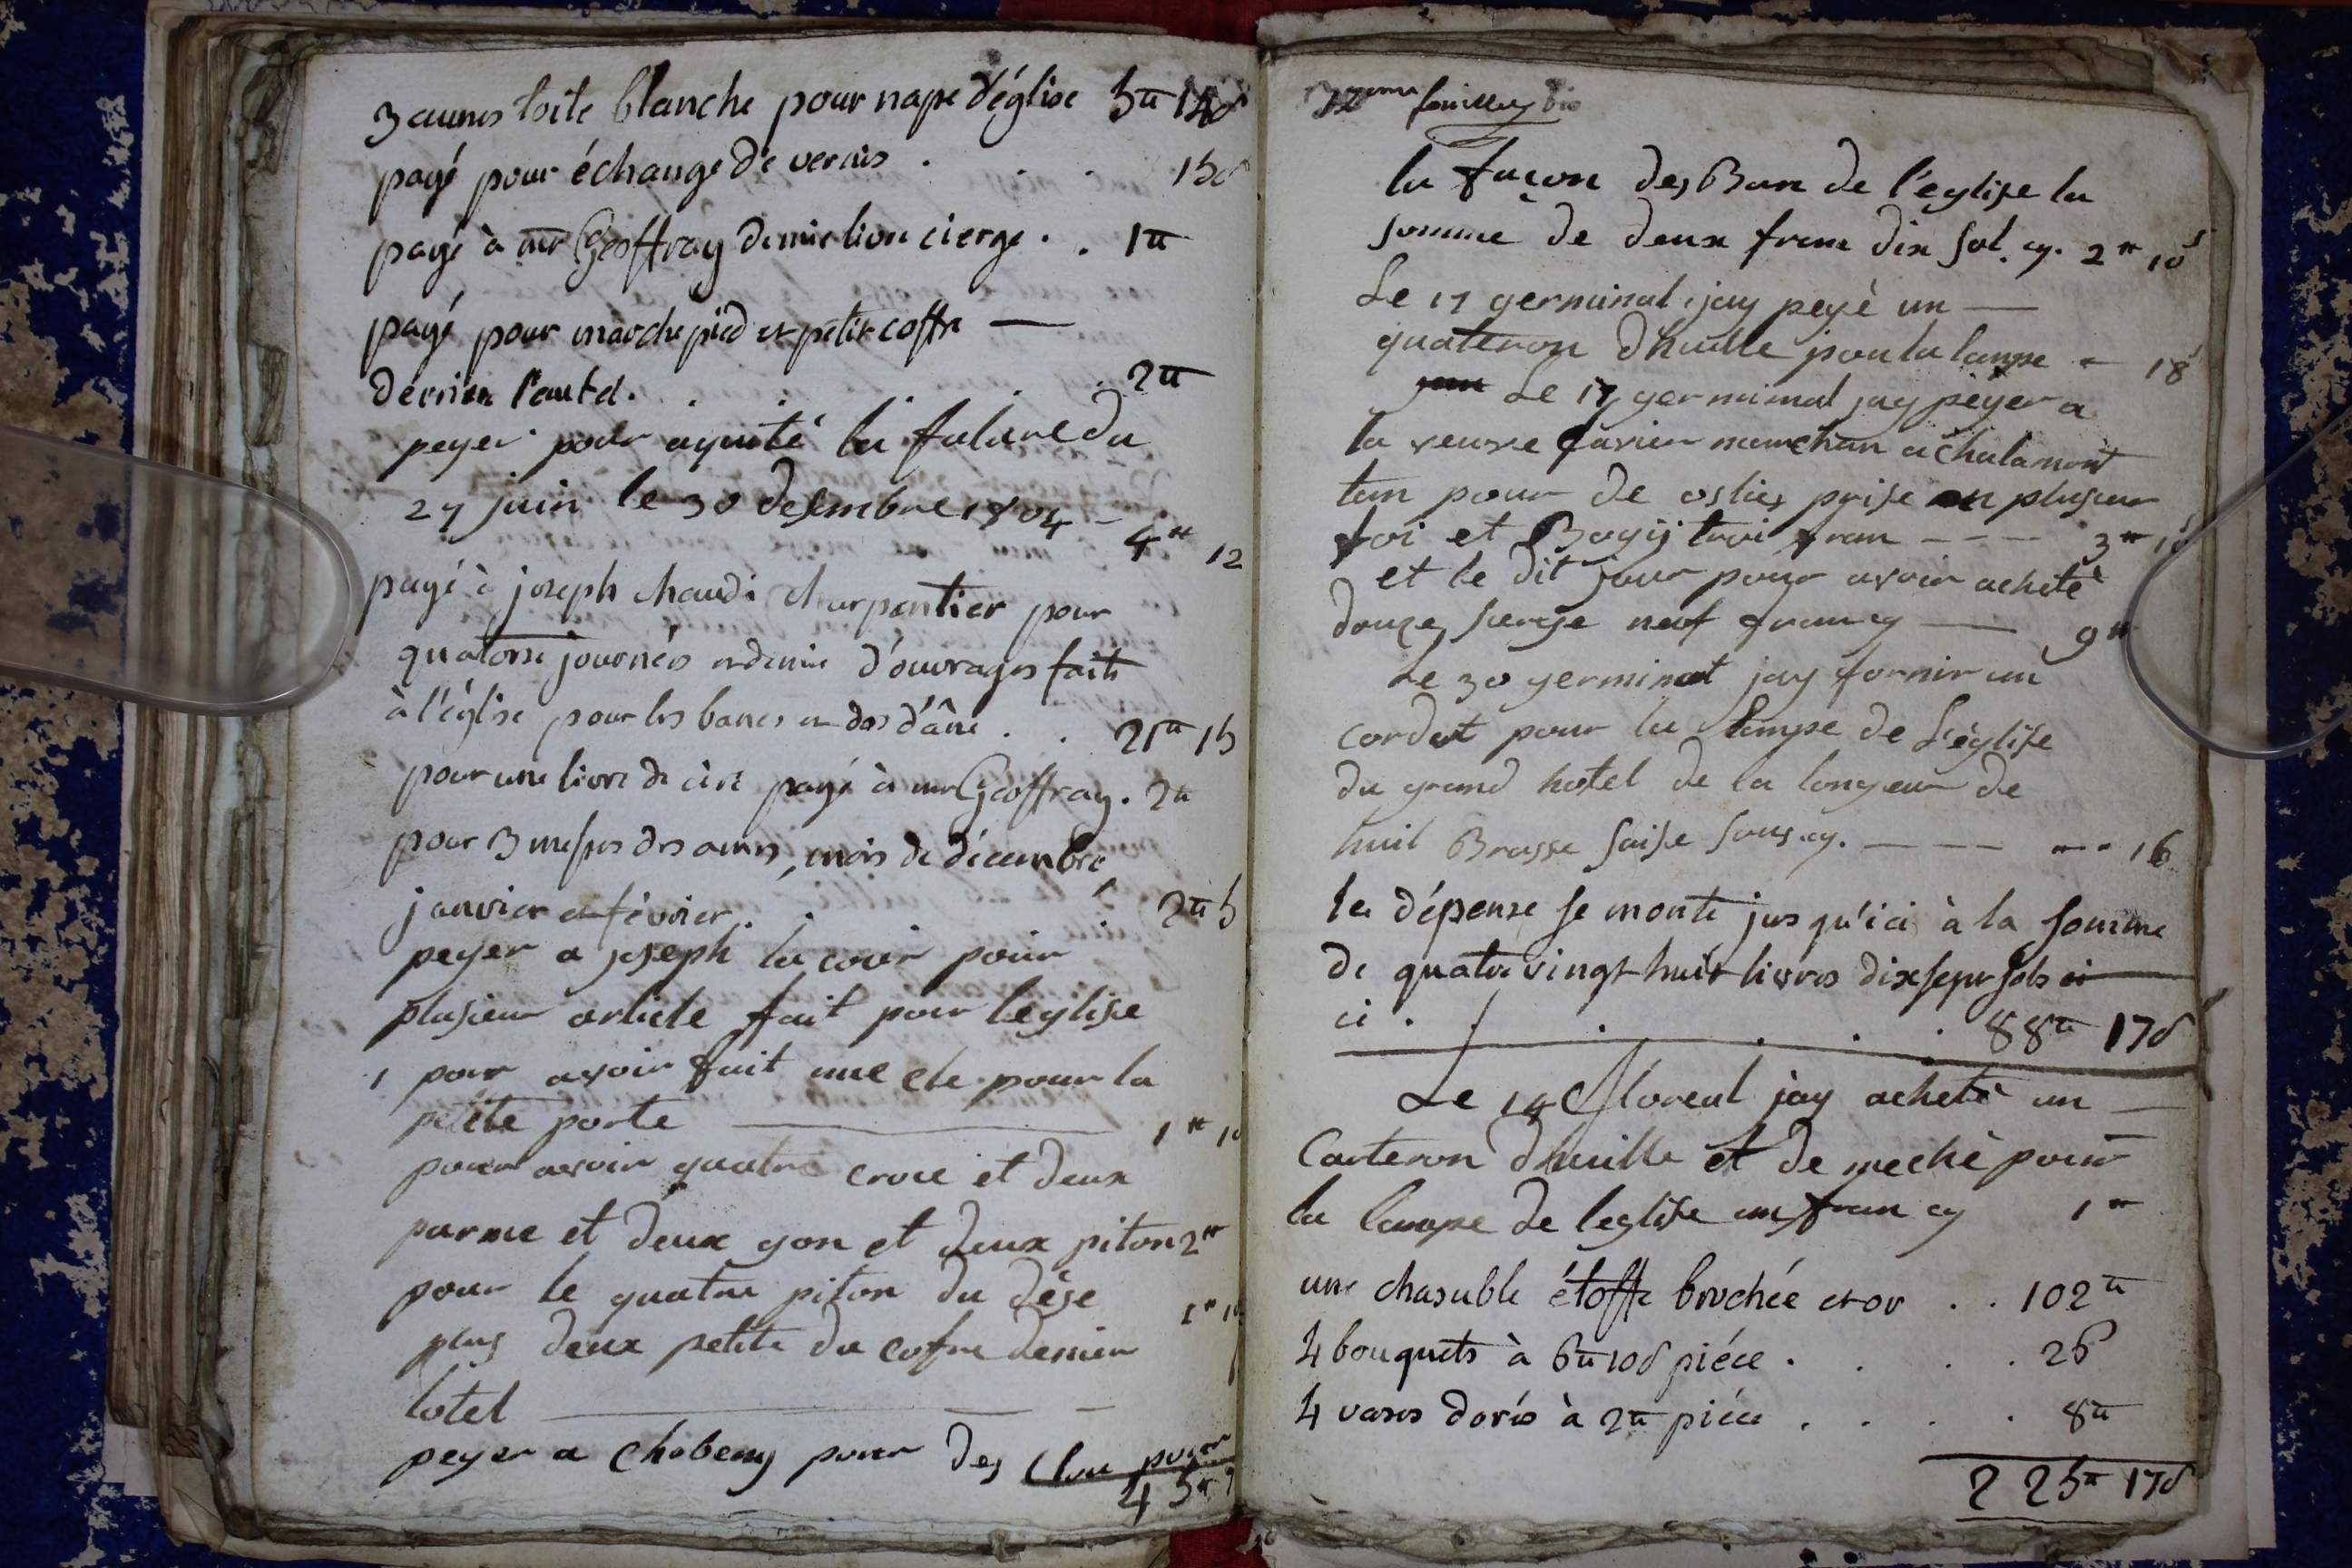 3 aunes toile blanche pour nape d'église 5₶ 14s
payé pour échange de verais . . . 15s
payé à mr Geoffray demie livre cierge . . 1₶
payé pour marchepied et petit coffre —
derrier l'autel . . . . . 2₶
peyer pour aquité la falure du
27 juin le 30 desembre 1804 - 4₶ 12
payé à joseph chaudi charpentier pour
quatorse journées et demie d'ouvrages faits
à l'église pour les bancs en dos d'âne . . 21₶ 15
pour une livre de cire payé à mr Geoffray . 2₶
pour 3 messes des ames, mois de décembre,
janvier et février . . . 2₶ 5
peyer a joseph la couir pour
plusieur article fait pour leglise
1 pour avoir fait une cle pour la
petite porte — 1₶ 10
pour avoir quatre croce et deux
parme et deux gon et deux piton 2₶
pour le quatre piton du dése 1₶ 10
plus deux petite du cofre derrier
lotel —
peyer a Chobeny pour des Clou poyer
45₶
feuillet bis
la facon des Ban de l'eglise la
somme de deux franc dix sol. cy. 2₶ 10s
Le 17 germinal jay peyé un —
quateron dhuille pou la lampe - 18s
Le 17 germimal jay péyer a
la veuve favier marchan a chalamont
tan pour de osties prise en plusieur
foi et Bogij troi fran - - - 3₶ 10s
et le dit jour pour avoir acheté
douze sierge neuf fran cy — 9₶
Le 30 germinat jay fornir un
cordat pour la Lampe de L'eglise
du grand hotel de la longeur de
huil Brasse saise sous cy. — — — 16
la dépense se monte jusqu'ici à la somme
de quatre vingt huit livres dix sept sols ci
ci . . . . . 88₶ 17s
Le 14 floreal jay acheté un —
Carteron dhuille et de meche pour
la lampe de leglise un fran cy 1₶
une chasuble étoffe brochée et or . . 102₶
4 bouquets à 6₶ 10s piéce . . . . 26
4 vases dorés à 2₶ piéce . . . . 8₶
225₶ 17s